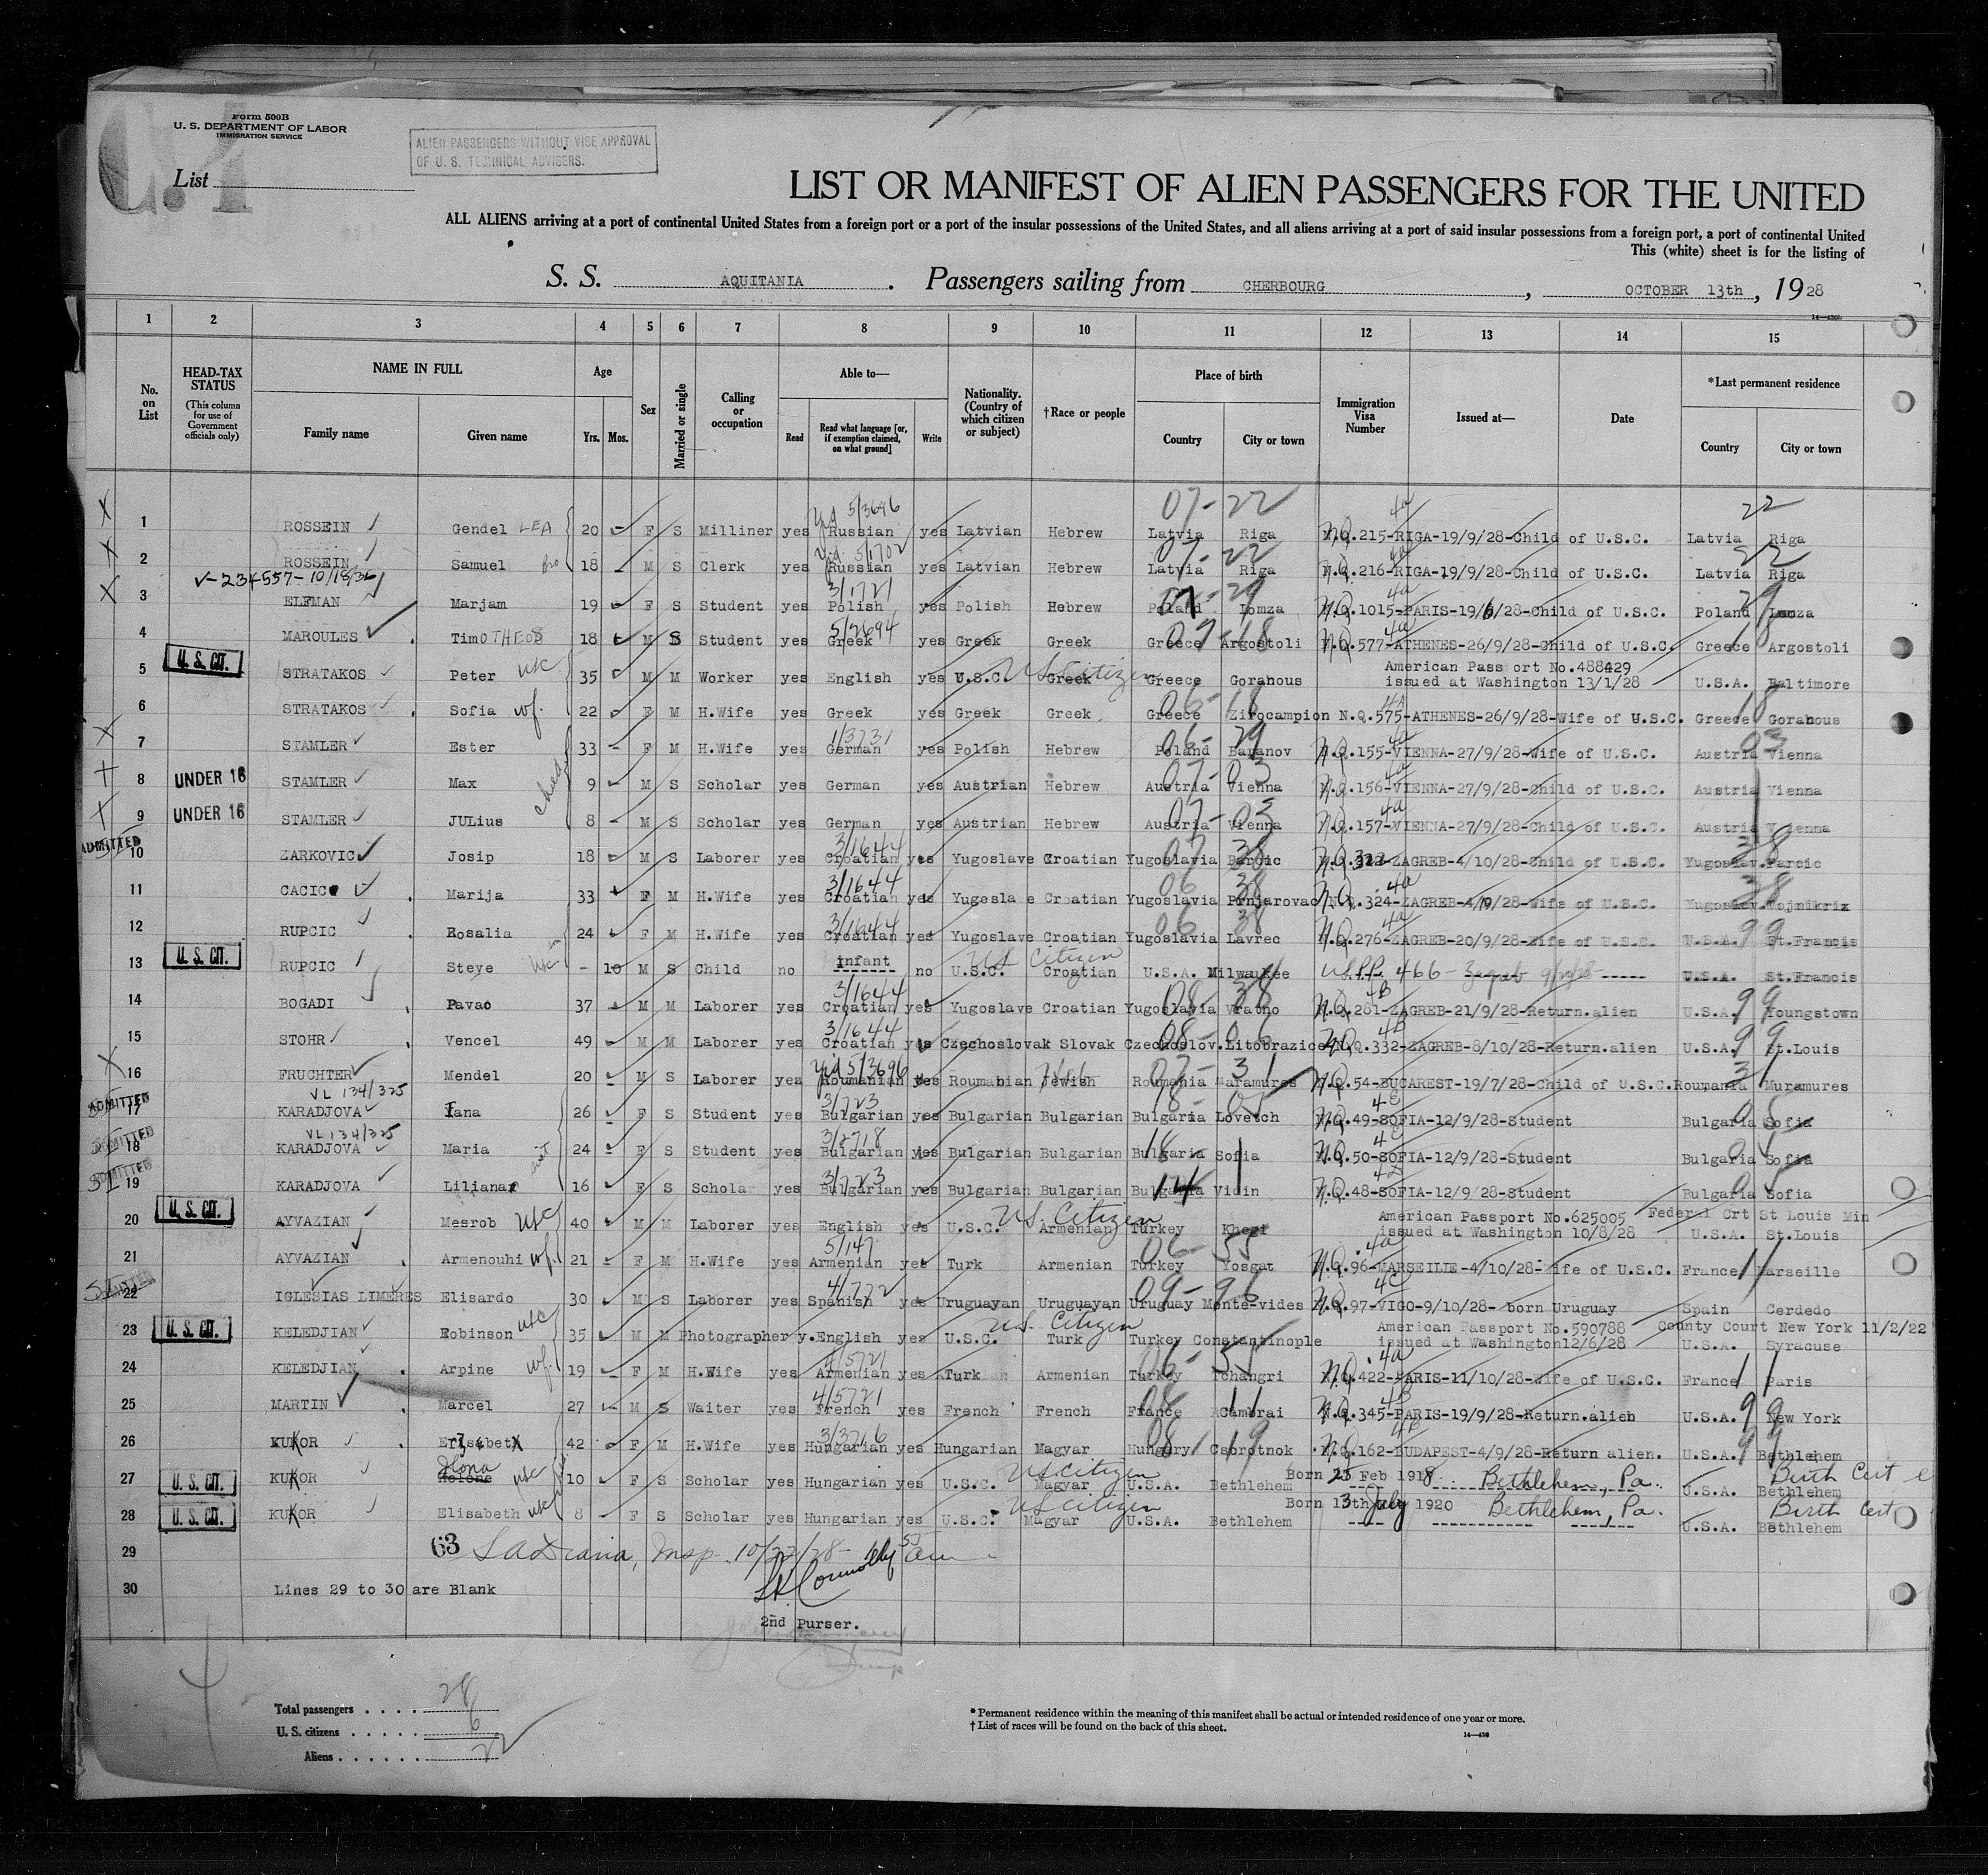 Form 500B
U. S. DEPARTMENT OF LABOR
IMMIGRATION SERVICE
ALIEN PASSENGERS WITHOUT VISE APPROVAL
OF U. S. TECHNICAL ADVISERS.
List
LIST OR MANIFEST OF ALIEN PASSENGERS FOR THE UNITED
ALL ALIENS arriving at a port of continental United States from a foreign port or a port of the insular possessions of the United States, and all aliens arriving at a port of said insular possessions from a foreign port, a port of continental United
This (white) sheet is for the listing of
S. S. AQUITANIA. Passengers sailing from CHERBOURG, OCTOBER 13th, 1928
1 2 3 4 5 6 7 8 9 10 11 12 13 14 15
No. on List
HEAD-TAX STATUS (This column for use of Government officials only)
NAME IN FULL Family name Given name
Age Yrs. Mos.
Sex
Married or single
Calling or occupation
Able to— Read Read what language [or, if exemption claimed, on what ground] Write
Nationality. (Country of which citizen or subject)
†Race or people
Place of birth Country City or town
Immigration Visa Number
Issued at—
Date
*Last permanent residence Country City or town
1 ROSSEIN Gendel LEA 20 F S Milliner yes Yid 5/3696 Russian yes Latvian Hebrew 07-22 Latvia Riga N.Q.215-RIGA-19/9/28-Child of U.S.C. 4a 22 Latvia Riga
2 ROSSEIN Samuel bro 18 M S Clerk yes Yid 5/1702 Russian yes Latvian Hebrew 07-22 Latvia Riga N.Q.216-RIGA-19/9/28-Child of U.S.C. 4a 22 Latvia Riga
V-234557-10/18/34
3 ELFMAN Marjam 19 F S Student yes 3/1721 Polish yes Polish Hebrew Poland Lomza N.Q.1015-PARIS-19/6/28-Child of U.S.C. 4a Poland Lomza
4 MAROULES TimOTHEOS 18 M S Student yes 5/2694 Greek yes Greek Greek 07-18 Greece Argostoli N.Q.577-ATHENES-26/9/28-Child of U.S.C. 4a 18 Greece Argostoli
U. S. CIT.
5 STRATAKOS Peter usc 35 M M Worker yes English yes U.S.C. US Citizen Greek Greece Gorahous American Passport No.488429 issued at Washington 13/1/28 U.S.A. Baltimore
6 STRATAKOS Sofia wf. 22 F M H.Wife yes Greek yes Greek Greek 06-18 Greece Zirocampion N.Q.575-ATHENES-26/9/28-Wife of U.S.C. 4A 18 Greece Gorahous
7 STAMLER Ester 33 F M H.Wife yes 1/3731 German yes Polish Hebrew 06-29 Poland Baranov N.Q.155-VIENNA-27/9/28-Wife of U.S.C. 4a 03 Austria Vienna
8 UNDER 16 STAMLER Max 9 M S Scholar yes German yes Austrian Hebrew 07-03 Austria Vienna N.Q.156-VIENNA-27/9/28-Child of U.S.C. 4a Austria Vienna
9 UNDER 16 STAMLER JULius 8 M S Scholar yes German yes Austrian Hebrew 07-03 Austria Vienna N.Q.157-VIENNA-27/9/28-Child of U.S.C. 4a Austria Vienna
ADMITTED
10 ZARKOVIC Josip 18 M S Laborer yes 3/1644 Croatian yes Yugoslave Croatian Yugoslavia 07 38 Parcic N.Q.322-ZAGREB-4/10/28-Child of U.S.C. 38 Yugoslav. Parcic
11 CACIC Marija 33 F M H.Wife yes 3/1644 Croatian yes Yugoslave Croatian Yugoslavia 06 38 Prnjarovac N.Q.324-ZAGREB-4/10/28-Wife of U.S.C. 4a 38 Yugoslav. Wojnikrix
12 RUPCIC Rosalia 24 F M H.Wife yes 3/1644 Croatian yes Yugoslave Croatian Yugoslavia 06 38 Lavrec N.Q.276-ZAGREB-20/9/28-Wife of U.S.C. 4a 99 U.S.A. St.Francis
U. S. CIT.
13 RUPCIC Steye usc 10 M S Child no infant no U.S.C. US Citizen Croatian U.S.A. Milwaukee U.S.P.P. 466 - Zagreb U.S.A. St.Francis
14 BOGADI Pavao 37 M M Laborer yes 3/1644 Croatian yes Yugoslave Croatian Yugoslavia 08-38 Vratno N.Q.281-ZAGREB-21/9/28-Return.alien 4B 99 U.S.A. Youngstown
15 STOHR Vencel 49 M M Laborer yes 3/1644 Croatian yes Czechoslovak Slovak Czechoslov. 08-06 Litobrazice N.Q.332-ZAGREB-8/10/28-Return.alien 4B 99 U.S.A. St.Louis
16 FRUCHTER Mendel 20 M S Laborer yes Yid 5/3696 Roumanian yes Roumanian Jewish Roumania 07-31 Maramures N.Q.54-BUCAREST-19/7/28-Child of U.S.C. 31 Roumania Muramures
VL 134/325
ADMITTED
17 KARADJOVA Iana 26 F S Student yes 3/723 Bulgarian yes Bulgarian Bulgarian Bulgaria 18-05 Lovetch N.Q.49-SOFIA-12/9/28-Student 4E Bulgaria Sofia
VL 134/325
ADMITTED
18 KARADJOVA Maria 24 F S Student yes 3/2718 Bulgarian yes Bulgarian Bulgarian Bulgaria 18 Sofia N.Q.50-SOFIA-12/9/28-Student 4E Bulgaria Sofia
ADMITTED
19 KARADJOVA Liliana 16 F S Scholar yes 3/723 Bulgarian yes Bulgarian Bulgarian Bulgaria 14 Vidin N.Q.48-SOFIA-12/9/28-Student Bulgaria Sofia
U. S. CIT.
20 AYVAZIAN Mesrob usc 40 M M Laborer yes English yes U.S.C. US Citizen Armenian Turkey Khegi American Passport No.625005 issued at Washington 10/8/28 Federal Crt St Louis Min U.S.A. St.Louis
21 AYVAZIAN Armenouhi wf. 21 F M H.Wife yes 5/147 Armenian yes Turk Armenian Turkey 06-55 Yosgat N.Q.96-MARSEILLE-4/10/28-Wife of U.S.C. 4a 11 France Marseille
22 IGLESIAS LIMERES Elisardo 30 M S Laborer yes 4/722 Spanish yes Uruguayan Uruguayan Uruguay 09-96 Monte-vides N.Q.97-VIGO-9/10/28- born Uruguay 4C Spain Cerdedo
U. S. CIT.
23 KELEDJIAN Robinson usc 35 M M Photographer y. English yes U.S.C. U.S. Citizen Turk Turkey Constantinople American Passport No.590788 issued at Washington12/6/28 County Court New York 11/2/22 U.S.A. Syracuse
24 KELEDJIAN Arpine wf. 19 F M H.Wife yes 4/5721 Armenian yes Turk Armenian Turkey 06-55 Tchangri N.Q.422-PARIS-11/10/28-Wife of U.S.C. 4a 11 France Paris
25 MARTIN Marcel 27 M S Waiter yes 4/5721 French yes French French France 08 11 Cambrai N.Q.345-PARIS-19/9/28-Return.alien 4B 99 U.S.A. New York
26 KUKOR Erzsebet 42 F M H.Wife yes 3/3716 Hungarian yes Hungarian Magyar Hungary 08 19 Csorotnok N.Q.162-BUDAPEST-4/9/28-Return alien. 4B 99 U.S.A. Bethlehem
27 U. S. CIT. KUKOR Ilona usc 10 F S Scholar yes Hungarian yes U.S.C. US Citizen Magyar U.S.A. Bethlehem Born 25 Feb 1918 Bethlehem, Pa. Birth Cert U.S.A. Bethlehem
28 U. S. CIT. KUKOR Elisabeth usc 8 F S Scholar yes Hungarian yes U.S.C. US Citizen Magyar U.S.A. Bethlehem Born 13th July 1920 Bethlehem, Pa. Birth Cert U.S.A. Bethlehem
29 63 Insp. 10/22/28
30 Lines 29 to 30 are Blank
2nd Purser.
Total passengers 28
U. S. citizens 6
Aliens 22
* Permanent residence within the meaning of this manifest shall be actual or intended residence of one year or more.
† List of races will be found on the back of this sheet.
14—430